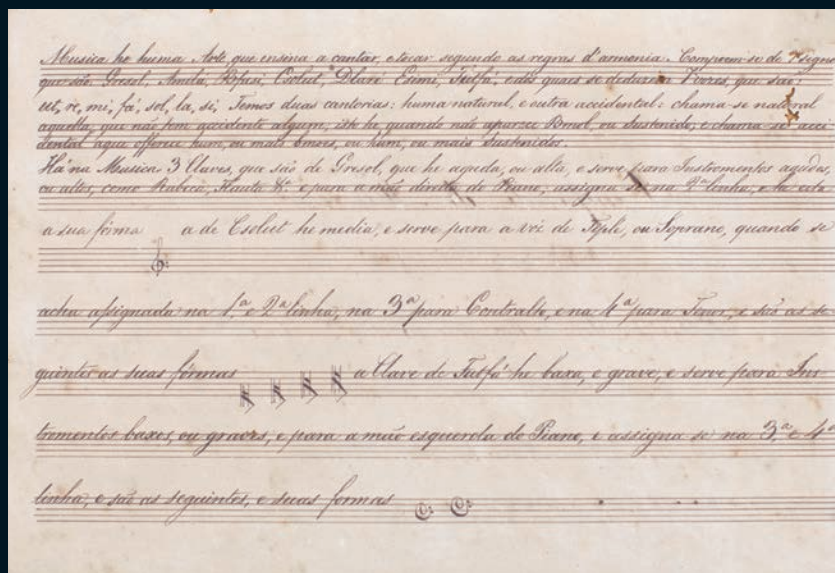 Musica he huma Arte, que ensina a cantar, e tocar segundo as regras d'armonia. Compoem-se de 7 signos
que são Gresol, Amila, Bfasi, Csolut, Dlaré Esimi, Faifá, e dos quaes se deduzem 7 vozes, que são:
ut, re, mi, fá, sol, la, si, Temos duas cantorias: huma natural, e outra accidental: chama-se natural
aquella, que não tem accidente algum, isto he quando não aparece Bmol, ou Sustenido; e chama-se acci-
dental aque offerece hum, ou mais Bmoes, ou hum, ou mais Sustenidos.
Há na Musica 3 Claves, que são de Gresol, que he aguda, ou alta, e serve para Instromentos agudos,
ou altos, como Rabeca, Flauta &ª. e para a mão direita do Piano, assigna se na 2ª linha, e he esta
a sua fórma a de Csolut he media, e serve para a voz de Tiple, ou Soprano, quando se
acha assignada na 1.ª e 2ª linha, na 3ª para Contralto, e na 4ª para Tenor, e são as se
guintes as suas fórmas a Clave de Faifá he baxa, e grave, e serve para Ins
tromentos baxos, ou graves, e para a mão esquerda do Piano, e assigna se na 3.ª e 4ª
linha, e são as seguintes, e suas formas